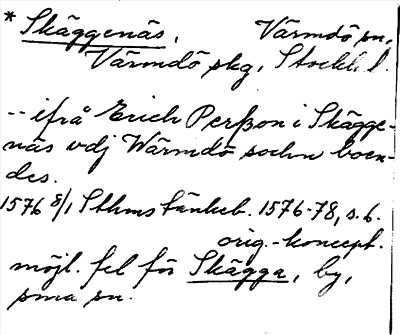 * Skäggenäs. Värmdö sn,
Värmdö skg, Stockh. l.
-- ifrå Erich Perßon i Skägge-
näs vdj Wärmdö sochn boen-
des.
1576 8/1 Sthms tänkeb. 1576-78, s. 6.
orig.-koncept.
möjl. fel för Skägga, by,
sma sn.